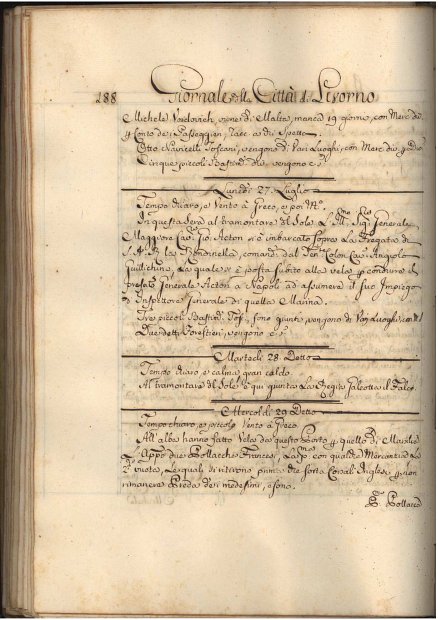 188 Giornale della Città di Livorno
Michele Vuclovich, viene di Malta, manca 19 giorni, con Merc. die
p Conto de Passeggieri,
Otto Navicelli Toscani, vengono di Vari Luoghi, con Merc. die p
Cinque piccoli Bastim.
Lunedì 27. Luglio
Tempo chiaro, e Vento à Greco, e poi M.
In questa sera al tramontare del Sole L'Ill. Sig. Generale
Maggiore Cav. Gio: Acton si è imbarcato sopra La Fregata di
S. A. R. la Rondinella, comand. dal Ten. Colon. Cav. Angiolo
Guillichini, La quale si è posta subito alla vela p condurre il
prefato Generale Acton a Napoli ad assumere il suo Impiego
d'Inspettore Generale di quella Marina.
Tre piccoli Bastim. Tos. sono giunti, vengono di Vari Luoghi, con
Due detti Forestieri, vengono
Martedì 28. Detto
Tempo chiaro, e calma gran caldo
Al tramontare del Sole è qui giunta La Regia Galeotta il Falco
Mercoldì 29 Detto
Tempo chiaro, e piccolo Vento à Greco
All'alba hanno fatto Vela da questo Porto p quello di Marsilia
è Tropo due Pollacche Francesi, La p.ma con qualche Mercanzia La
2. vuota, Le quali si ritirono prima che sorta Corsali Inglesi p non
rimanere Preda de i medesimi, e sono.
P. Pollacca